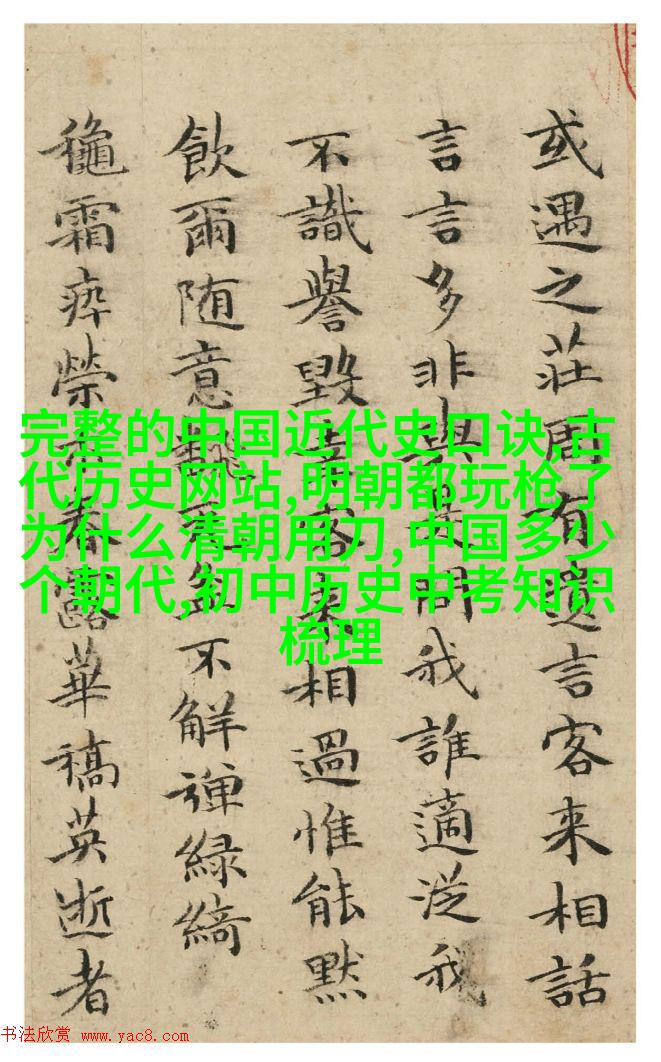 或遇之莊周有遺言客来相話
言言多非與是問我誰適從我
不識譽毀客来相過惟能默
飲爾随意不解彈綠綺
龝霜瘁榮春露華稿英逝者
完整的中国近代史口诀,古
代历史网站,明朝都玩枪了
为什么清朝用刀,中国多少
个朝代,初中历史中考知识
梳理
书法欣赏 www.yac8.com